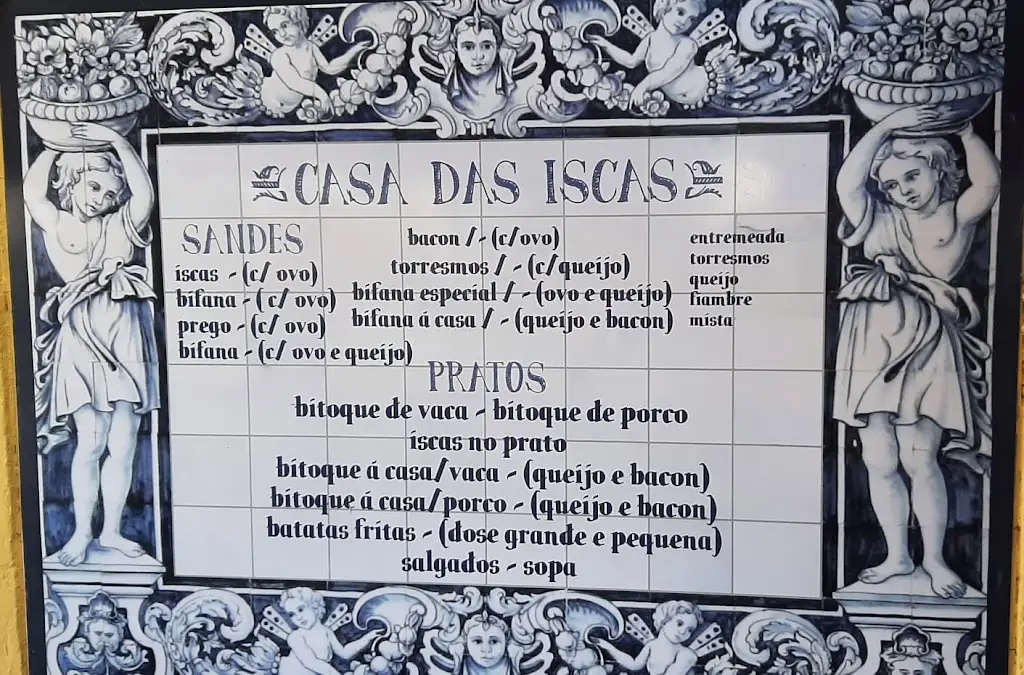 CASA DAS ISCAS
SANDES
iscas - (c/ ovo)
bifana - (c/ ovo)
prego - (c/ ovo)
bifana - (c/ ovo e queijo)
bacon / - (c/ovo)
torresmos / - (c/queijo)
bifana especial / - (ovo e queijo)
bifana á casa / - (queijo e bacon)
entremeada
torresmos
queijo
fiambre
mista
PRATOS
bitoque de vaca - bitoque de porco
iscas no prato
bitoque á casa/vaca - (queijo e bacon)
bitoque á casa/porco - (queijo e bacon)
batatas fritas - (dose grande e pequena)
salgados - sopa